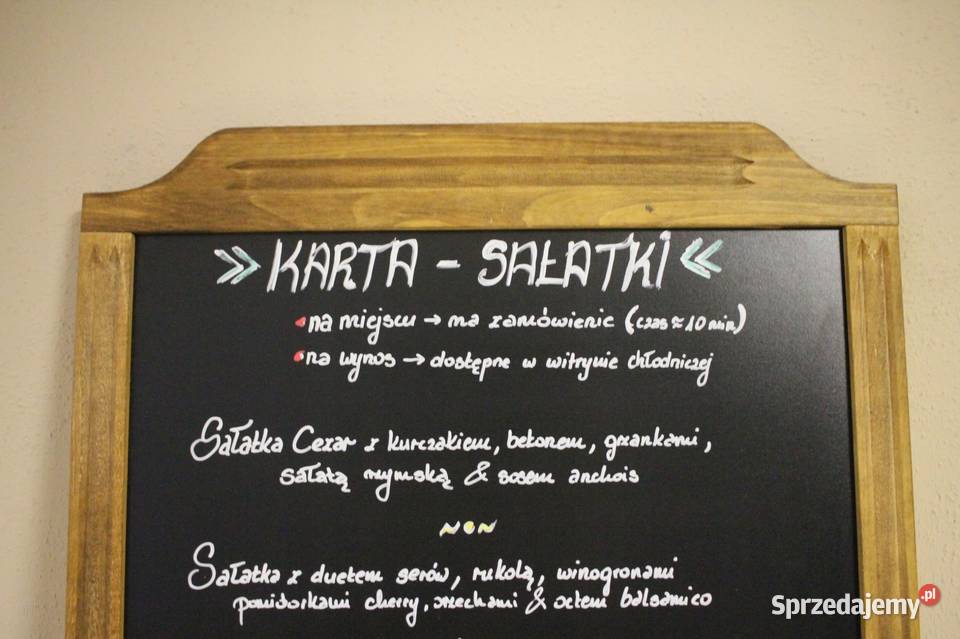 » KARTA - SAŁATKI «
• na miejscu → na zamówienie (czas ≈ 10 min)
• na wynos → dostępne w witrynie chłodniczej
Sałatka Cezar z kurczakiem, bekonem, grzankami,
sałatą rzymską & sosem anchois
Sałatka z duetem serów, rukolą, winogronami
pomidorkami cherry, orzechami & octem balsamico
Sprzedajemy.pl